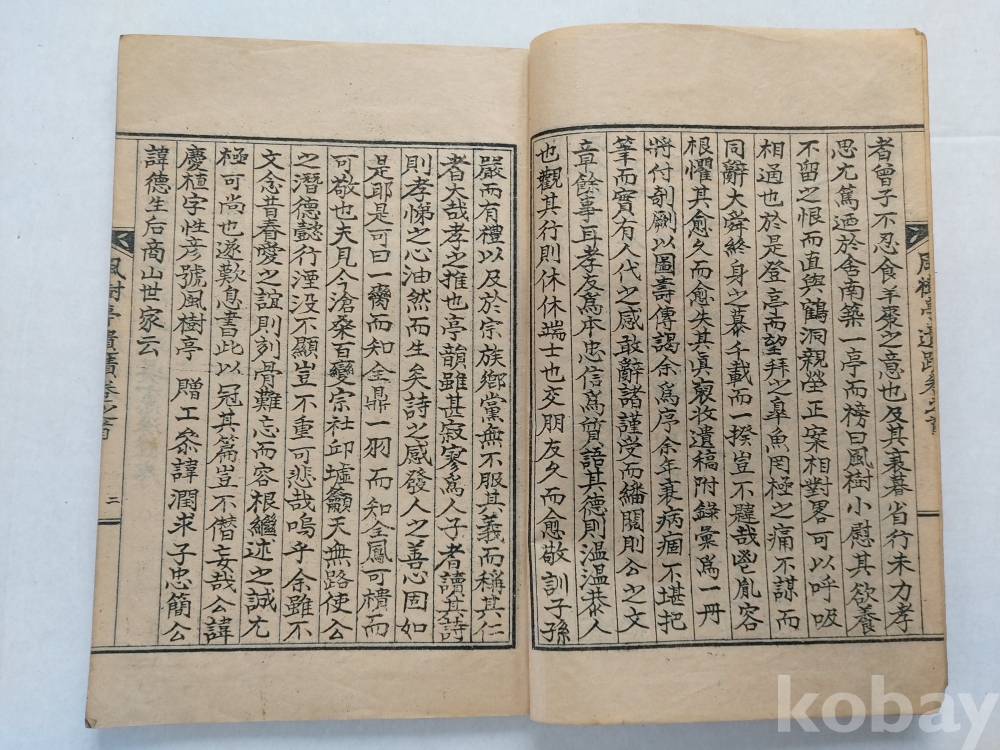 者曾子不忍食羊棗之意也及其衰暮省行未力孝
思尤篤廼於舍南築一亭而榜曰風樹小慰其欲養
不留之恨而直與鶴洞親塋正案相對畧可以呼吸
相通也於是登亭而望拜之臯魚罔極之痛不諒而
同辭大舜終身之慕千載而一揆豈不韙哉鬯胤容
根懼其愈久而愈失其眞裒收遺稿附錄彙爲一冊
將付剞劂以圖壽傳謁余爲序余年衰病痼不堪把
筆而實有人代之感敢辭諸謹受而繙閱則公之文
章餘事耳孝友爲本忠信爲質語其德則溫溫恭人
也觀其行則休休端士也交朋友久而愈敬訓子孫
嚴而有禮以及於宗族鄉黨無不服其義而稱其仁
者大哉孝之推也亭韻雖甚寂寥爲人子者讀其詩
則孝悌之心油然而生矣詩之感發人之善心固如
是耶是可曰一臠而知全鼎一羽而知全鳳可樻而
可敬也夫見今滄桑百變宗社邱墟籲天無路使公
之潛德懿行湮没不顯豈不重可悲哉嗚乎余雖不
文念昔眷愛之誼則刻骨難忘而容根繼述之誠尤
極可尚也遂歎息書此以冠其篇豈不僭妄哉公諱
慶植字性彦號風樹亭 贈工參諱潤求子忠簡公
諱德生后商山世家云
風樹亭遺蹟卷之首
二
kobay